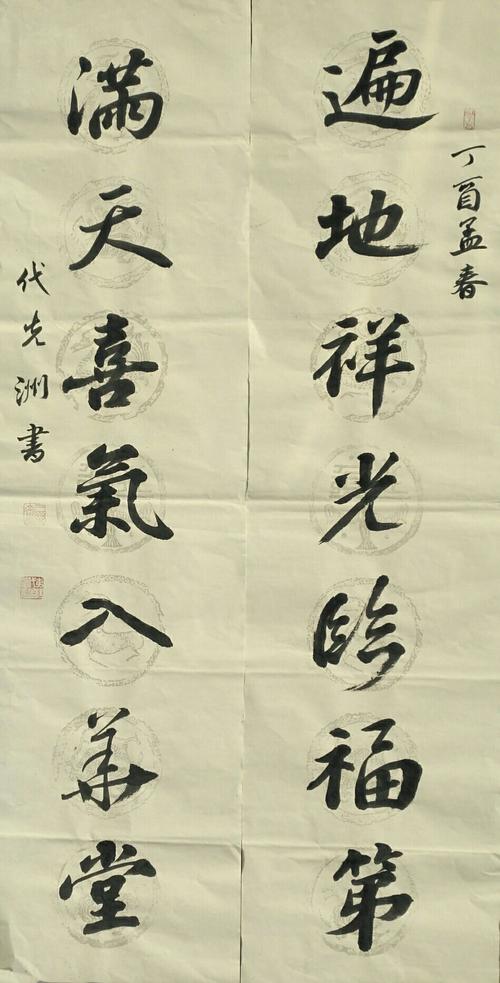 丁酉孟春
遍地祥光臨福第
满天喜氣入華堂
代先洲书